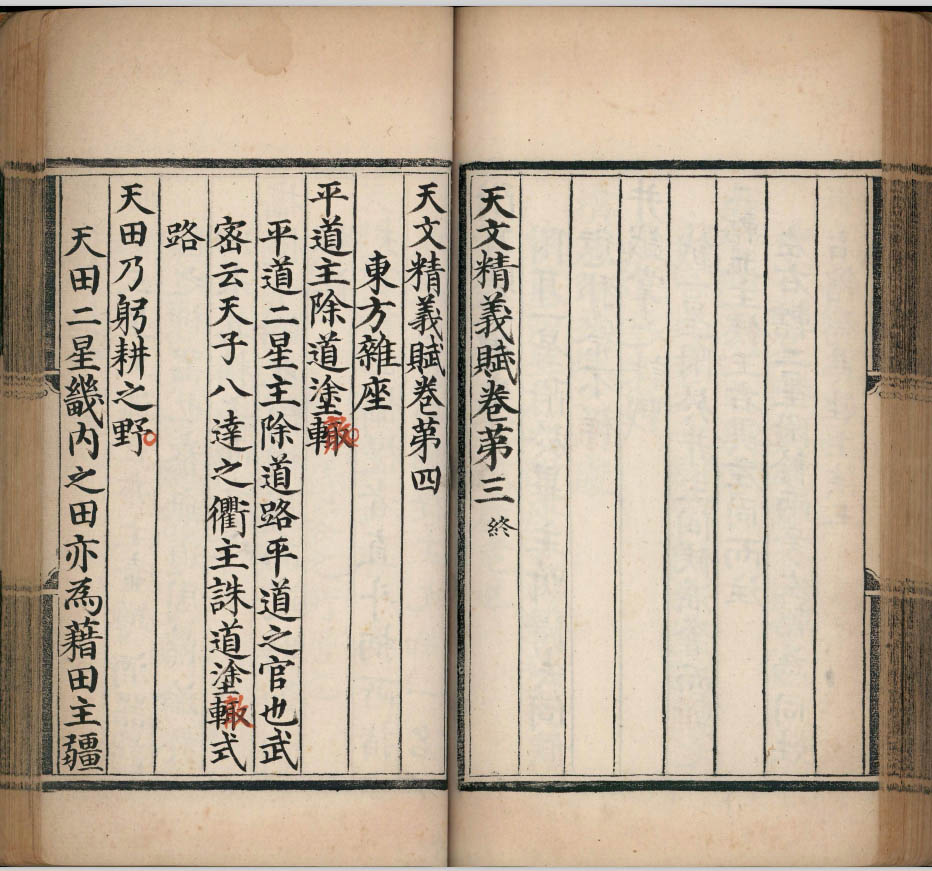 天文精義賦卷第三終
天文精義賦卷第四
東方雜座
平道主除道塗轍
平道二星主除道路平道之官也武
密云天子八達之衢主誅道塗轍式
路
天田乃躬耕之野
天田二星畿內之田亦為藉田主疆